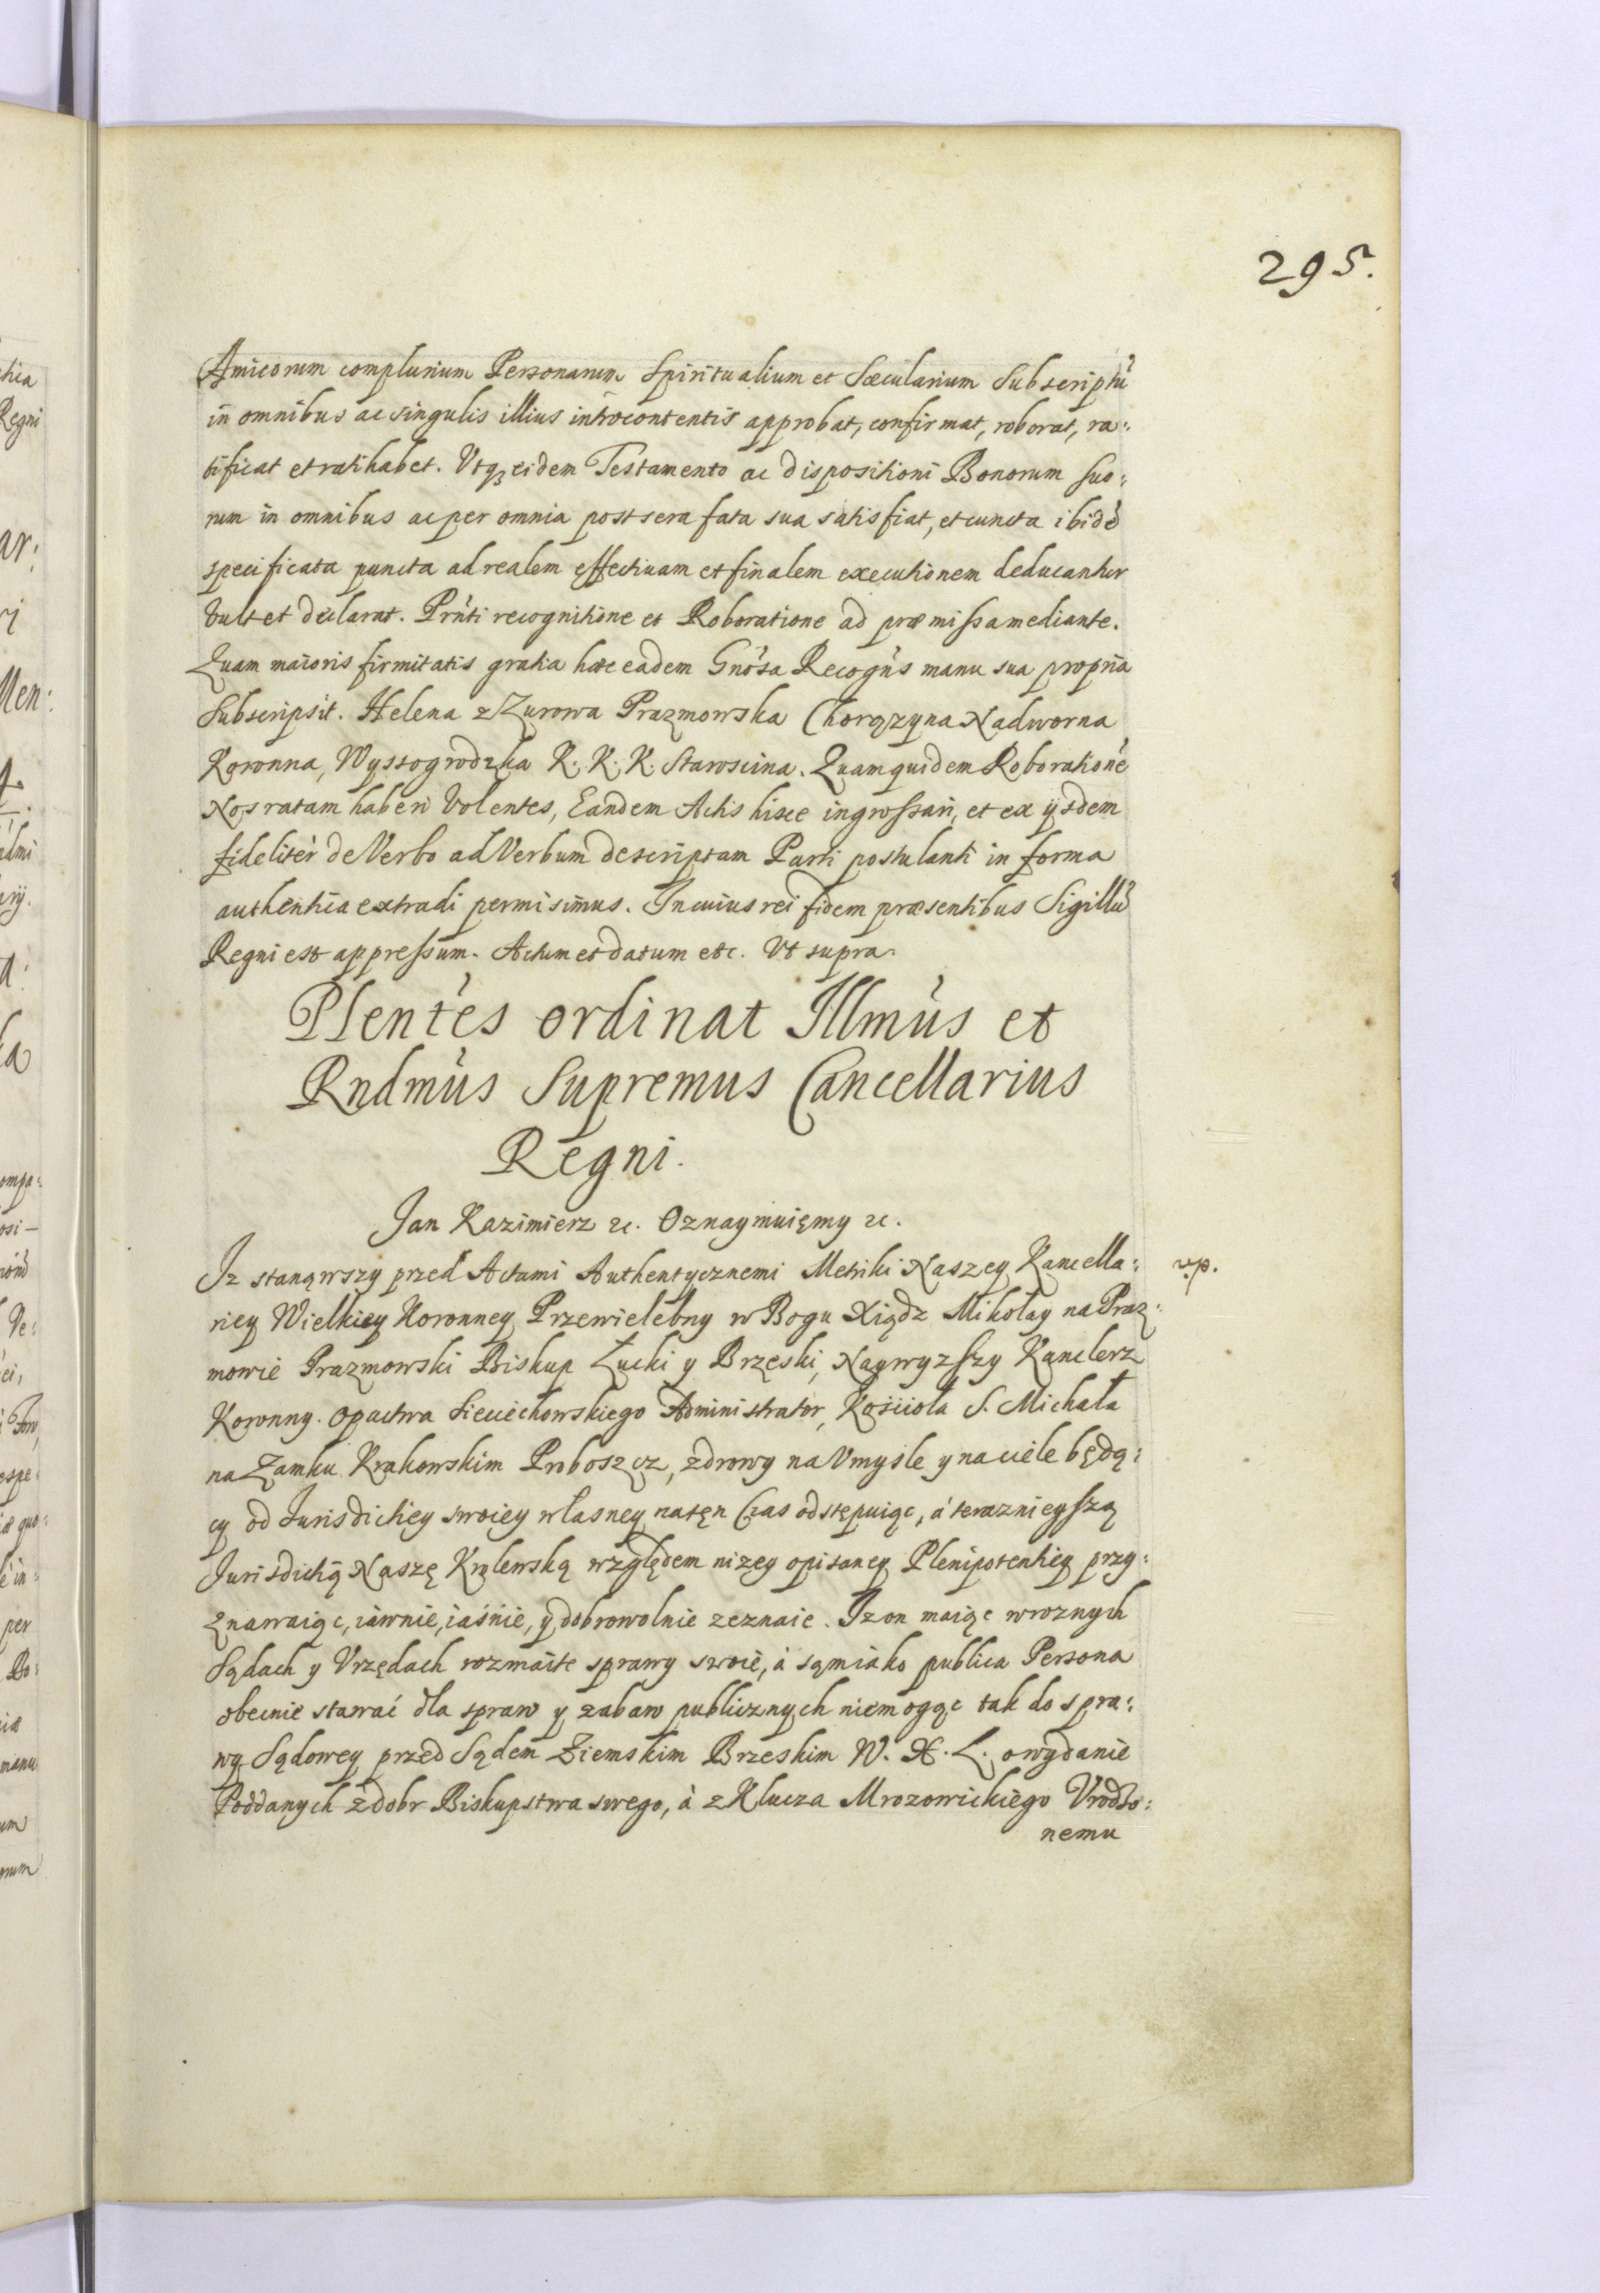 295.
Amicorum complurium Personarum Spiritualium et Sæcularium Subscriptũ
in omnibus ac singulis illius introcontentis approbat, confirmat, roborat, ra:
tificat et ratihabet. Utqꝫ eidem Testamento ac dispositioni Bonorum suo:
rum in omnibus ac per omnia post sera fata sua satisfiat, et cuncta ibidẽ
specificata puncta ad realem effectivam et finalem executionem deducantur
vult et declarat. Prñti recognitione et Roboratione ad præmissa mediante.
Quam maioris firmitatis gratia hæc eadem Gnõsa Recogñs manu sua propria
Subscripsit. Helena z Zurowa Prazmowska Chorązyna Nadworna
Koronna, Wyssogrodzka K. K. K. Staroscina. Quamquidem Roborationẽ
Nos ratam haberi Volentes, Eandem Actis hisce ingrossari, et ex ijsdem
fideliter de Verbo ad Verbum descriptam Parti postulanti in forma
authentica extradi permisimus. In cuius rei fidem præsentibus Sigillũ
Regni est appressum. Actum et datum etc. Ut supra.
Plentẽs ordinat Illmũs et
Rndmũs Supremus Cancellarius
Regni.
Jan Kazimierz etc. Oznaymuięmy etc.
Iz stanąwszy przed Actami Authentycznemi Metriki Naszey Kancella:
riey Wielkiey Koronney Przewielebny w Bogu Xiądz Mikołay na Praz:
mowie Prazmowski Biskup Łucki y Brzeski, Naywyzszy Kanclerz
Koronny. Opactwa Sieciechowskiego Administrator, Kościoła S. Michała
na Zamku Krakowskim Proboszcz, zdrowy na Vmysle y na ciele będą:
cy od Jurisdictiey swoiey własney natęn Czas odstępuiąc, á teraznieyszą
Jurisdictią Naszę Krolewską względem nizey opisaney Plenipotentiey przy:
znawaiąc, iawnie, iaśnie, y dobrowolnie zeznaie. Iz on maiąc w roznych
Sądach y Vrzędach rozmaite sprawy swoie, á sąm iako publica Persona
obecnie stawać dla spraw y zabaw publicznych niemogąc tak do spra:
wy Sądowey przed Sądem Ziemskim Brzeskim W. X. L. o wydanie
Poddanych z dobr Biskupstwa swego, à z Klucza Mrozowickiego Vrodzo:
nemu